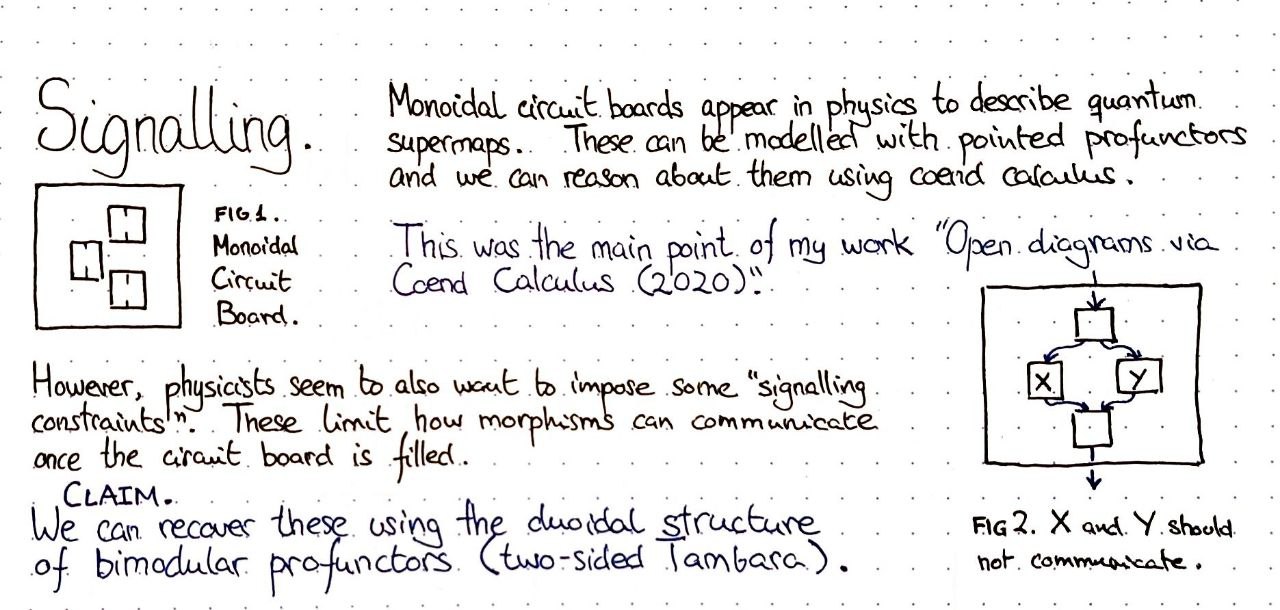 Signalling.
Monoidal circuit boards appear in physics to describe quantum
supermaps. These can be modelled with pointed profunctors
and we can reason about them using coend calculus.
FIG 1.
Monoidal
Circuit
Board.
This was the main point of my work "Open diagrams via
Coend Calculus (2020)".
X
Y
However, physicists seem to also want to impose some "signalling
constraints". These limit how morphisms can communicate
once the circuit board is filled.
CLAIM.
We can recover these using the duoidal structure
of bimodular profunctors (two-sided Tambara).
FIG 2. X and Y should
not communicate.